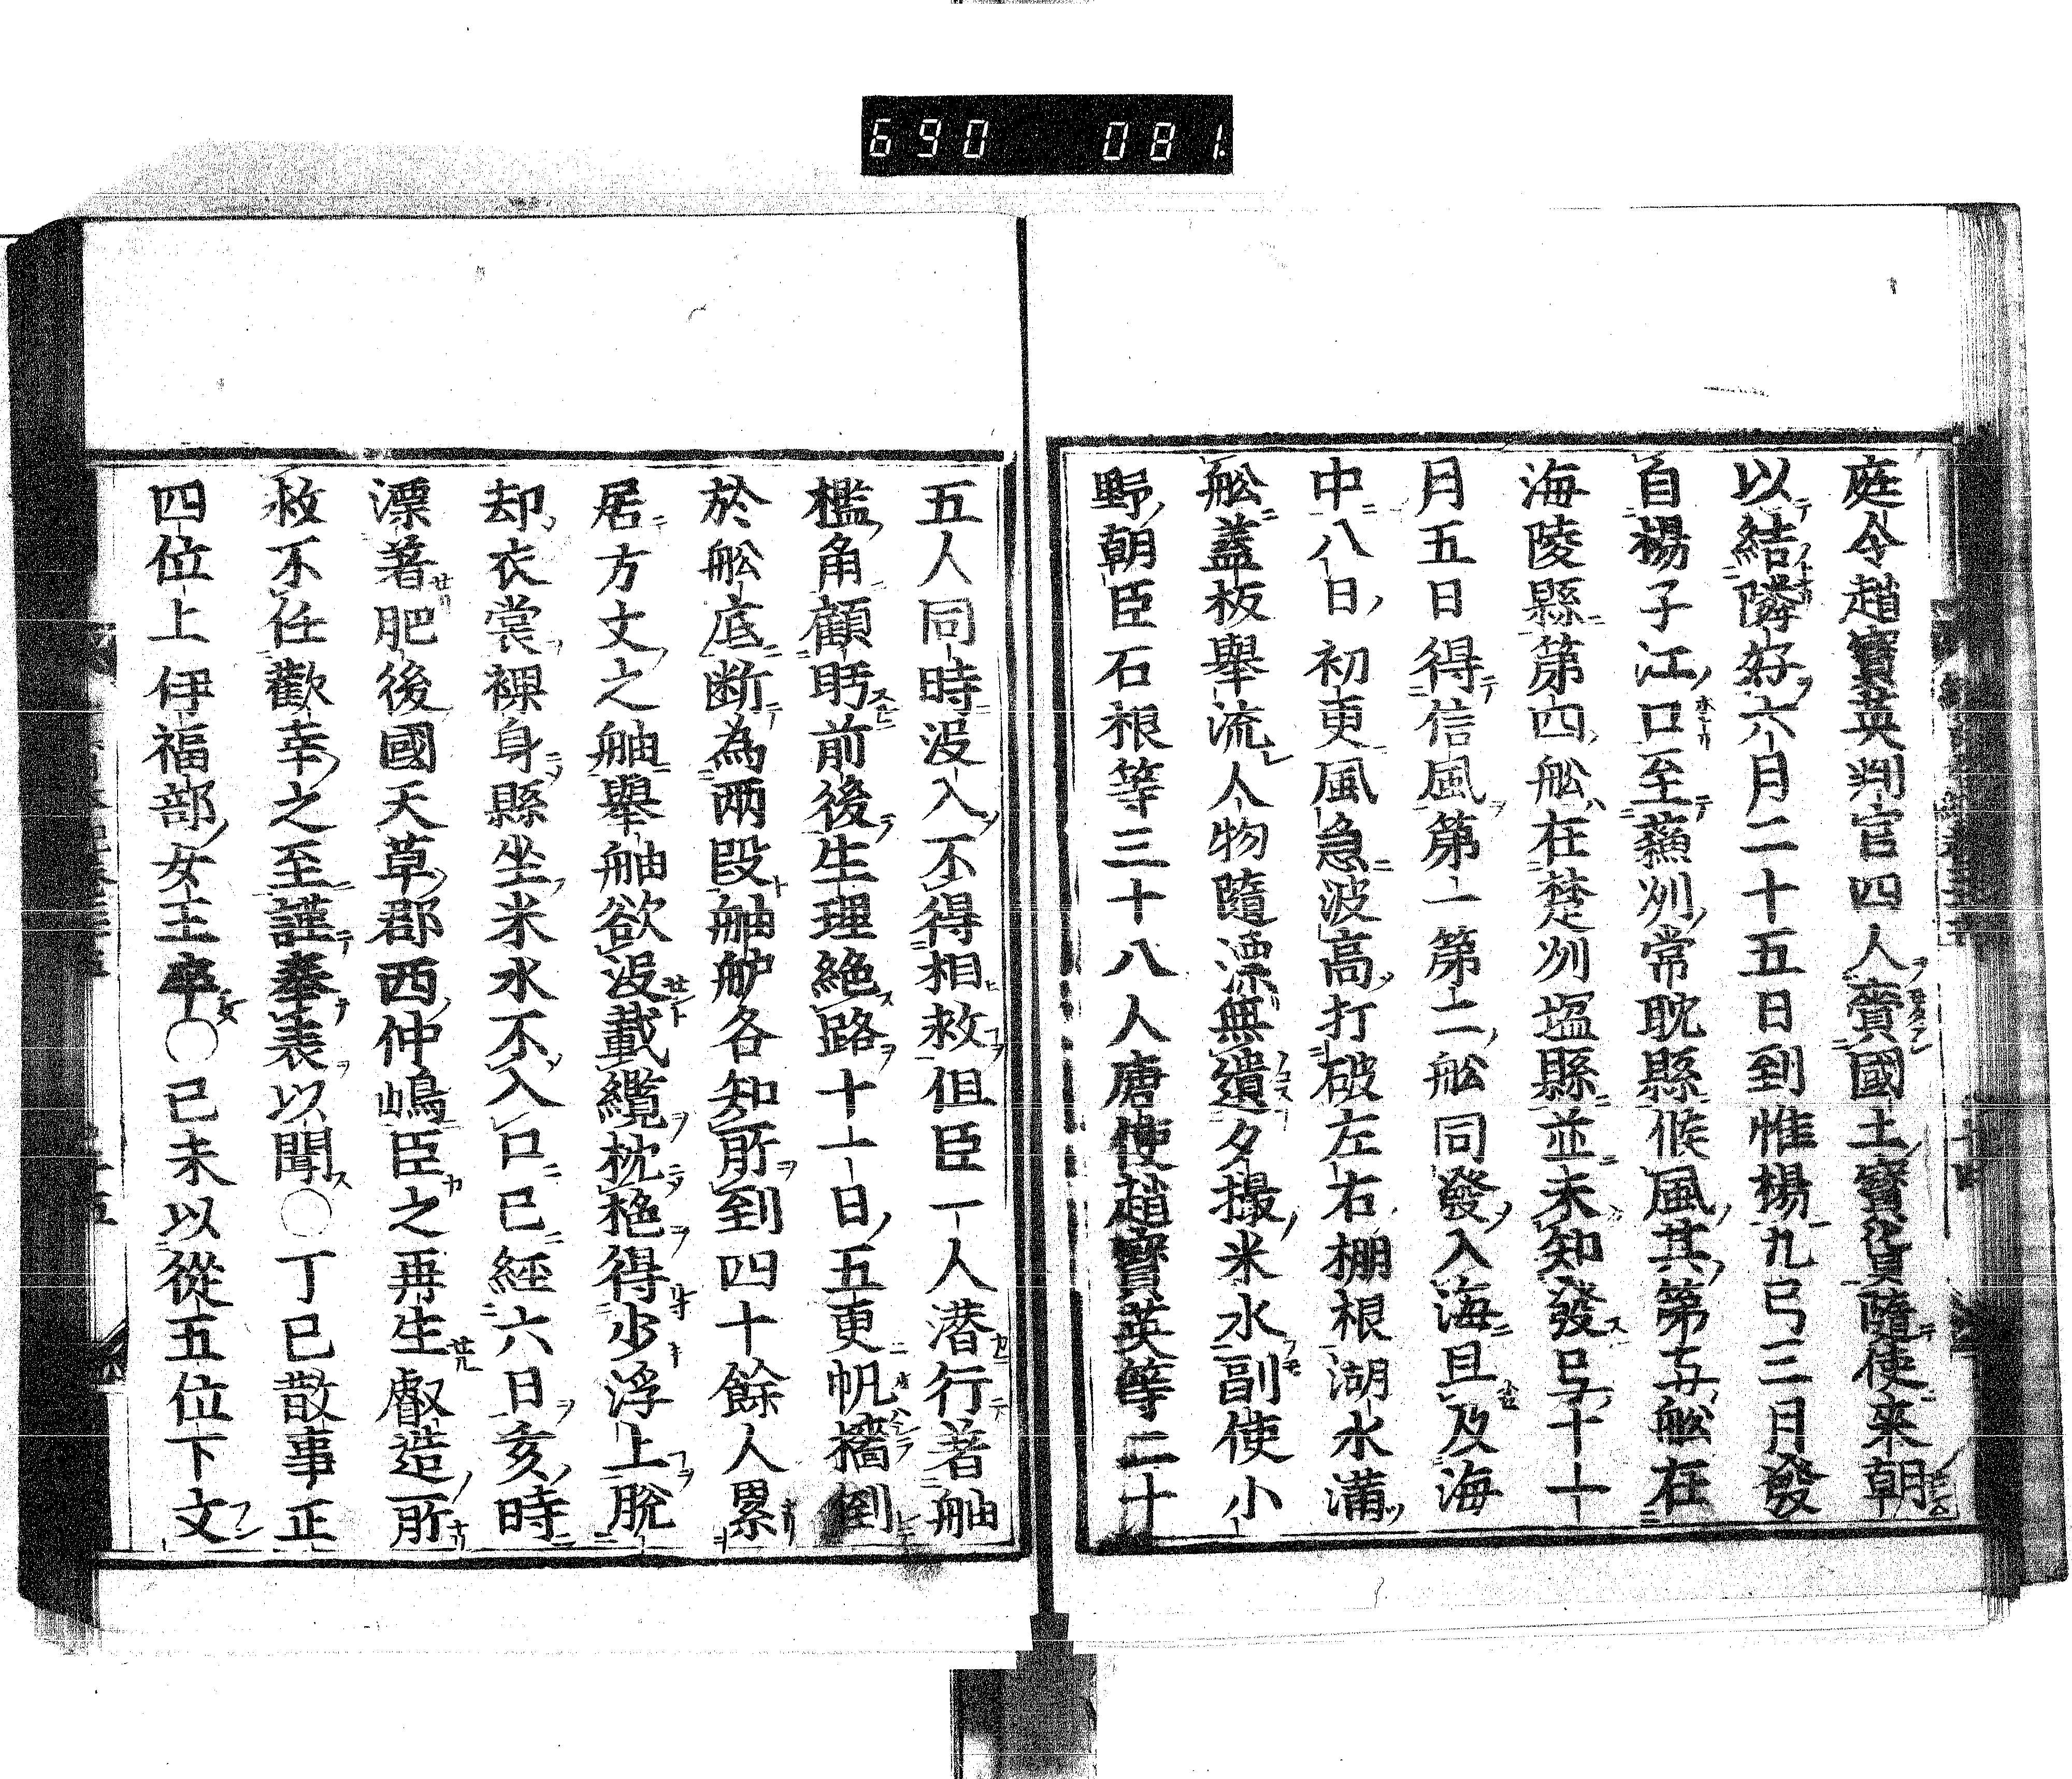 690 081.
庭令趙寶英判官四人賷國土寶貨隨使來朝
以結隣好六月二十五日到惟楊九弓三月發
自楊子江口至蘓州常耽縣候風其第三舩在
海陵縣第四舩在楚州塩縣並未知發日十一
月五日得信風第一第二舩同發入海且及海
中八日初更風急波高打破左右棚根湖水滿
舩蓋板舉流人物隨漂無遺夕撮米水副使小
野朝臣石根等三十八人唐使趙寶英等二十
五人同時没入不得相救但臣一人潜行著舳
檻角顧眄前後生理絶路十一日五更帆檣倒
於舩底断為两段舳舻各知所到四十餘人累
居方丈之舳舉舳欲没載纜枕桅得少浮上脫
却衣裳裸身縣坐米水不入口已經六日亥時
漂著肥後國天草郡西仲嶋臣之再生叡造所
救不任歡幸之至謹奉表以聞○丁巳散事正
四位上伊福部女王卒○己未以從五位下文